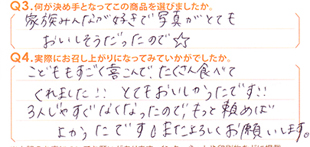 Q3.何が決め手となってこの商品を選びましたか。
家族みんなが好きで写真がとても
おいしそうだったので☆
Q4.実際にお召し上がりになってみていかがでしたか。
こどももすごく喜こんで、たくさん食べて
くれました!! とてもおいしかったです!!
3人じゃすぐなくなったので、もっと頼めば
よかったです!またよろしくお願いします。